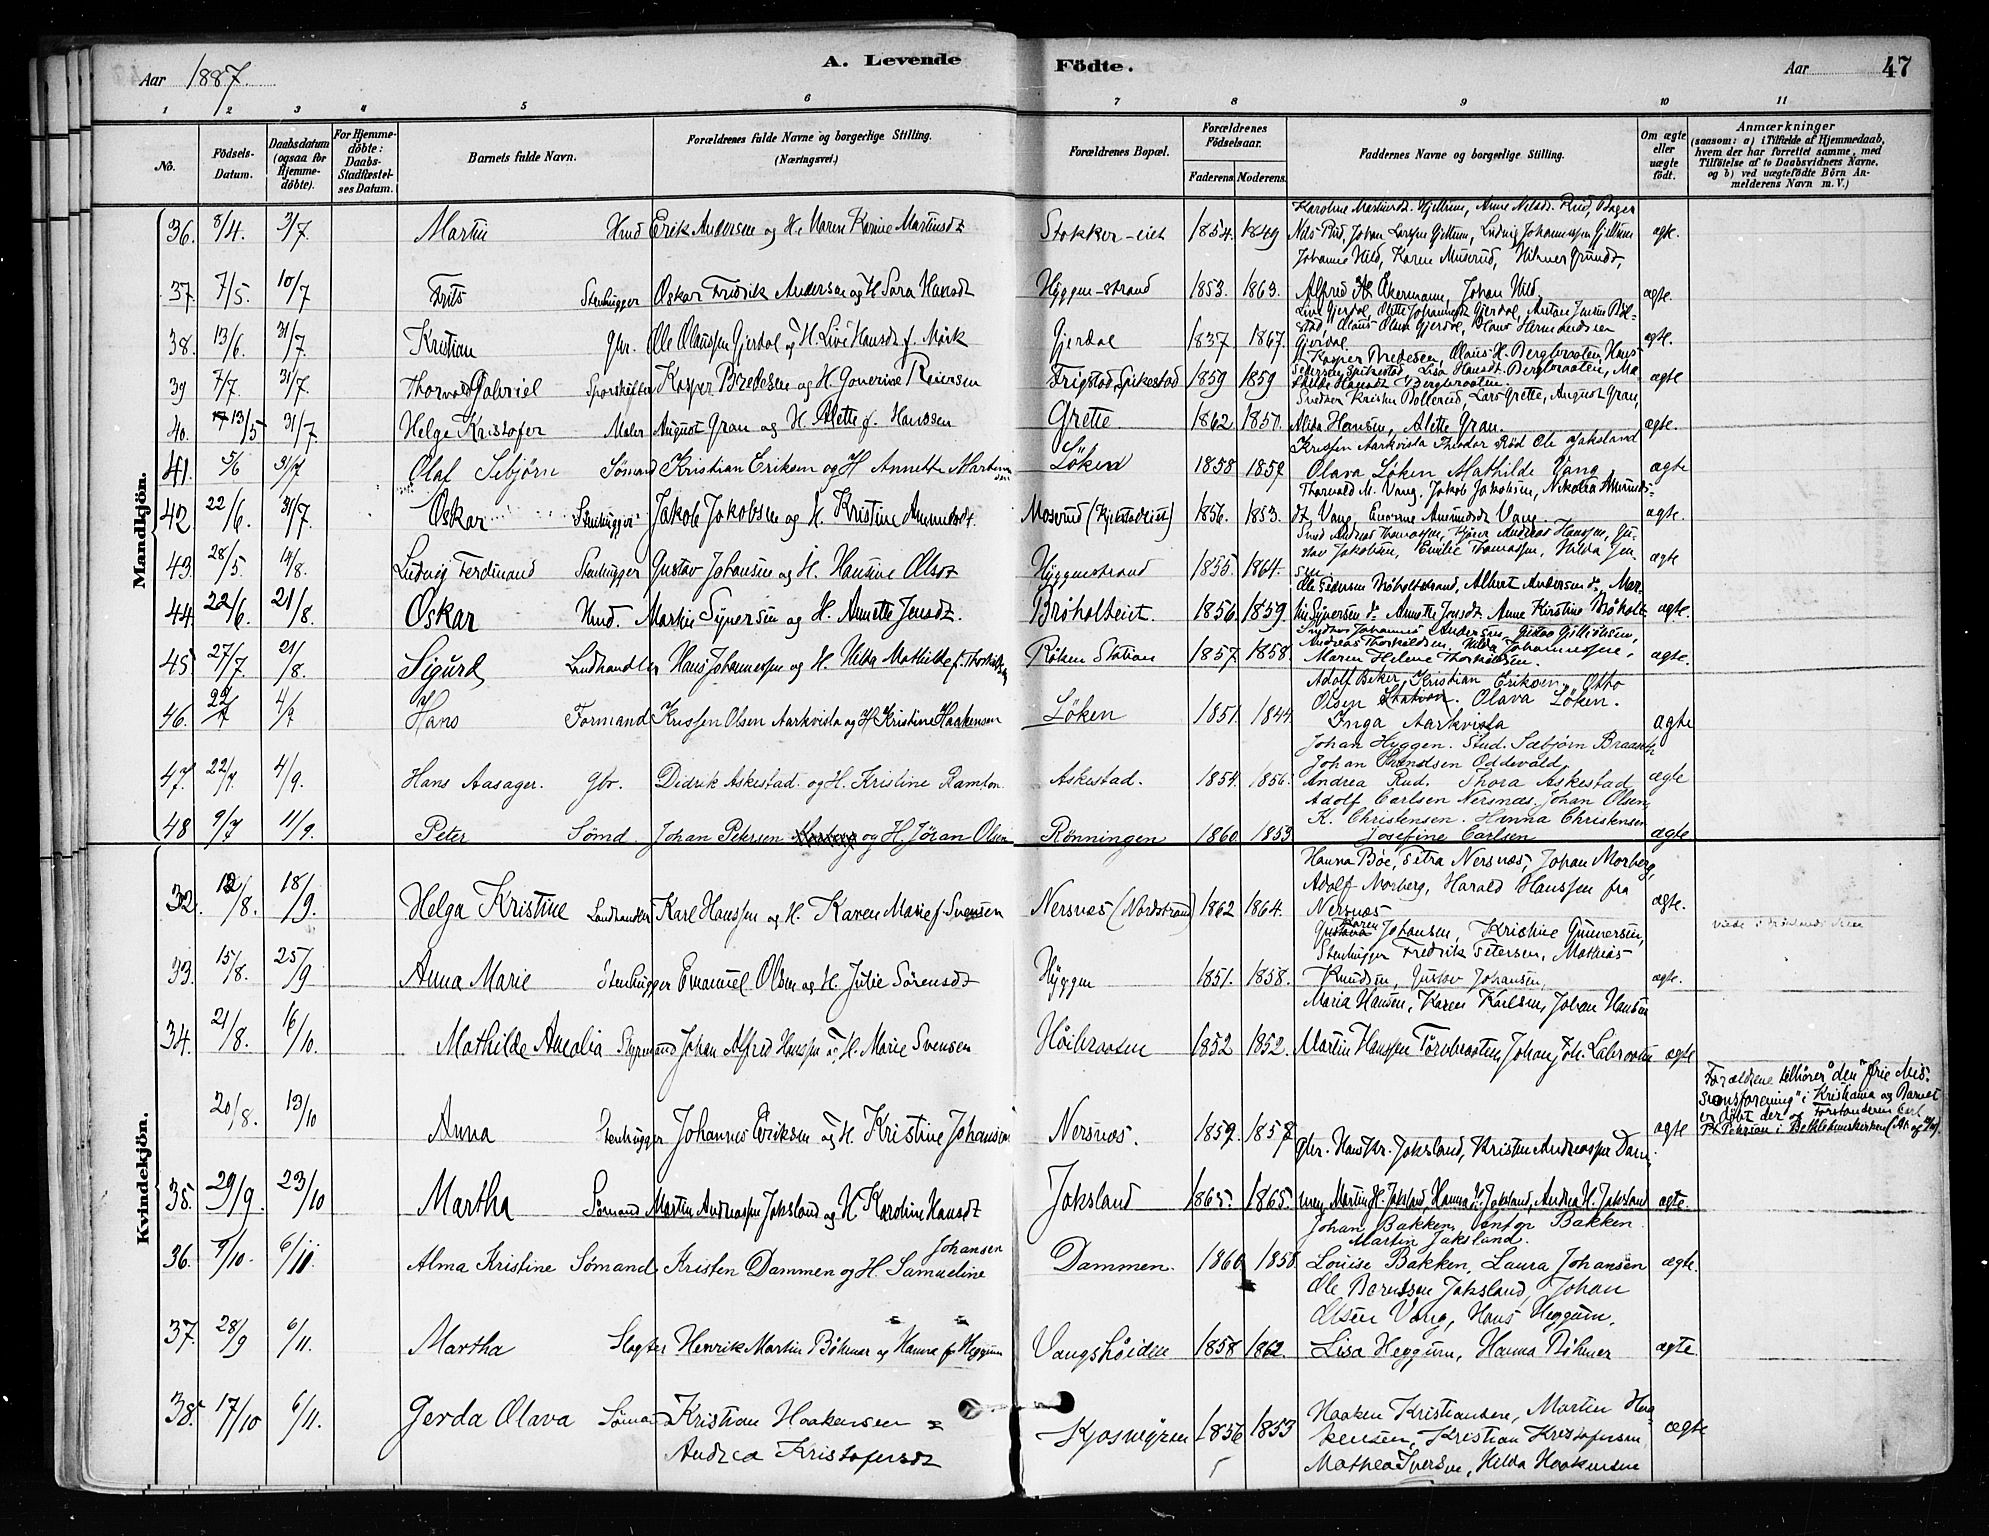 Aar 1887.
A. Levende Födte.
Aar 47
1 2 3 4 5 6 7 8 9 10 11
No.
Födsels-Datum.
Daabsdatum (ogsaa for Hjemmedöbte).
For Hjemmedöbte: Daabs-Stadfæstelses Datum.
Barnets fulde Navn.
Forældrenes fulde Navne og borgerlige Stilling. (Næringsvei.)
Forældrenes Bopæl.
Forældrenes Födselsaar.
Faderens. Moderens.
Faddernes Navne og borgerlige Stilling.
Om ægte eller uægte födt.
Anmærkninger (saasom: a) i Tilfælde af Hjemmedaab, hvem der har forrettet samme, med Tilföielse af to Daabsvidners Navne, og b) ved uægtefödte Börn Anmelderens Navn m. V.)
Mandkjön.
36. 8/4. 3/7. Martin Hmd Erik Andersen og H. Maren Karine Martinsdt Stokker-eiet 1854. 1849 Karoline Martinsdt. Gjellum, Anne Nilsd. Rud, Bager Nils Rud, Johan Larsen Gjellum, Ludvig Johannessen Gjellum ægte.
37. 7/5. 10/7 Frits Stenhugger Oskar Fredrik Andersen og H. Sara Hansdt Hyggen-strand 1853. 1863. Johanne Hild, Karen Muserud, Hilmer Grundt, Alfred Åkermann, Johan Hild. ægte.
38. 13/6. 31/7. Kristian Gbr. Ole Olaussen Gjerdal og H. Live Hansdt f. Mørk Gjerdal 1837. 1867. Live Gjerdal, Olette Johannesdt Gjerdal, Anton Jensen Bølstad, Olaus Olsen Gjerdal, Hans Hermandsen Gjerdal. ægte.
39 7/7. 31/7. Thorvald Gabriel Sporskifter Kasper Bredesen og H. Gonerine Reiersen Frigstad, Spikestad 1859 1859 Kasper Bredesen, Olaus H. Bergbraaten, Hans Pedersen Spikestad, Lisa Hansdt. Bergbraaten, Mathilde Hansdt Bergbraaten. ægte
40. 13/5 31/7 Helge Kristofer Maler August Gran og H. Alette f. Hanssen Grette 1862. 1850. Snedker Kristen Bollerud, Lars Grette, August Gran, Alida Hansen, Alette Gran. ægte.
41. 5/6 31/7 Olaf Sebjørn Sømand Kristian Eriksen og H. Annette Martinsen Løken 1858 1857 Kristen Aarkvisla Theodor Rød Ole Jaksland Olava Løken Mathilde Vang ægte
42 22/6. 31/7. Oskar Stenhugger Jakob Jakobsen og H. Kristine Amundsdt. Moserud (Kjekstadeiet) 1856. 1853. Thorvald M. Vang, Jakob Jakobsen, Nikolea Amundsdt, Vang, Enerine Amundsdt Vang. ægte.
43. 28/5. 14/8. Ludvig Ferdinand Stenhugger Gustav Johansen og H. Hansine Olsdt Hyggenstrand 1855. 1864. Smed Andreas Thomassen, Kjører Andreas Hanssen, Gustav Jakobsen, Emilie Thomassen, Hilda Jensen. ægte
44. 22/6. 21/8. Oskar Hmd. Martin Synersen og H. Annette Jensdt. Brøholteiet. 1856. 1859. Ole Pedersen Brøholtstrand, Albert Andersen do, Martin Synersen do Annette Jensdt Anne Kirstine Brøholt. ægte.
45. 27/7. 21/8. Sigurd Landhandler Hans Johannessen og H. Hilda Mathilde f. Thorkildsen Røken Station 1857. 1858. Snedker Johannes Andersen, Andreas Thorkildsen, Hilda Johannessen, Maren Helene Thorkildsen. ægte.
46. 22/7 4/9 Hans Formand Kristen Olsen Aarkvisla og H. Kristine Haakensen Løken 1851. 1844. Adolf Beker, Kristian Eriksen, Otto Olsen Olava Løken. Inga Aarkvisla ægte
47. 22/7. 4/9. Hans Aasager. Gbr. Didrik Askestad og H. Kristine Ramton Askestad. 1854. 1856. Johan Hyggen. Stud. Sæbjørn Braasch Johan Svendsen Oddevald Andrea Rud. Thora Askestad ægte
48 9/7 11/9. Peter Sømd. Johan Petersen og H. Jøran Olsen Rønningen 1860. 1853 Adolf Carlsen Nersnæs. Johan Olsen K. Christensen. Hanna Christensen Josefine Carlsen ægte
Kvindekjön.
32. 12/8. 18/9. Helga Kristine Landhandler Karl Hanssen og H. Karen Marie f. Svensen Nersnæs (Nordstrand) 1862 1864. Hanna Bøe, Petra Nersnæs, Johan Morberg, Adolf Morberg, Harald Hanssen fra Nersnæs ægte.
33. 15/8. 25/9 Anna Marie Stenhugger Emanuel Olsen og H. Julie Sørensdt Hyggen 1851. 1858. Karen Johansen, Kristine Gunnersen, Stenhugger Fredrik Petersen, Mathias Knudsen, Gustav Johansen. ægte.
34. 21/8. 16/10. Mathilde Amalia Styrmand Johan Alfred Hanssen og H. Marie Svensen Høibraaten 1852 1852. Maria Hansen, Karen Karlsen, Johan Hansen Martin Hanssen Tørnbraaten, Johan Joh. Labraaten ægte
20/8. 13/10 Anna Stenhugger Johannes Eriksen og H. Kristine Johansen Nersnæs. 1859. 1857 ægte Forældrene tilhører "den frie Missionsforening" i Kristiania og Barnet er døbt der af Forstanderen Carl P. Petersen i Bethlehemskirken
35. 29/9. 23/10 Martha Sømand Martin Andreassen Jaksland og H. Karoline Hansdt Jaksland 1865. 1865. Gbr. Hans Kr. Jaksland, Kristen Andreassen Dammen, Martin H. Jaksland Hanna H. Jaksland, Andrea H. Jaksland ægte.
36. 9/10. 6/11 Alma Kristine Sømand Kristen Dammen og H. Samueline Johansen Dammen. 1860 1858. Johan Bakken, Anton Bakken Martin Jaksland. Louise Bakken, Laura Johansen ægte.
37. 28/9 6/11. Martha Slagter Henrik Martin Bøhmer og Hanna f. Heggum Vangshøiden 1858 1862. Ole Berntsen Jaksland, Johan Olsen Vang, Hans Heggum, Lisa Heggum, Hanna Bøhmer ægte.
38. 17/10 6/11. Gerda Olava Sømand Kristian Haakensen og Andrea Kristofersdt 1856 1853 Haaken Kristiansen, Martin Haakensen, Kristian Kristofersen Mathea Iversen, Hilda Haakensen ægte